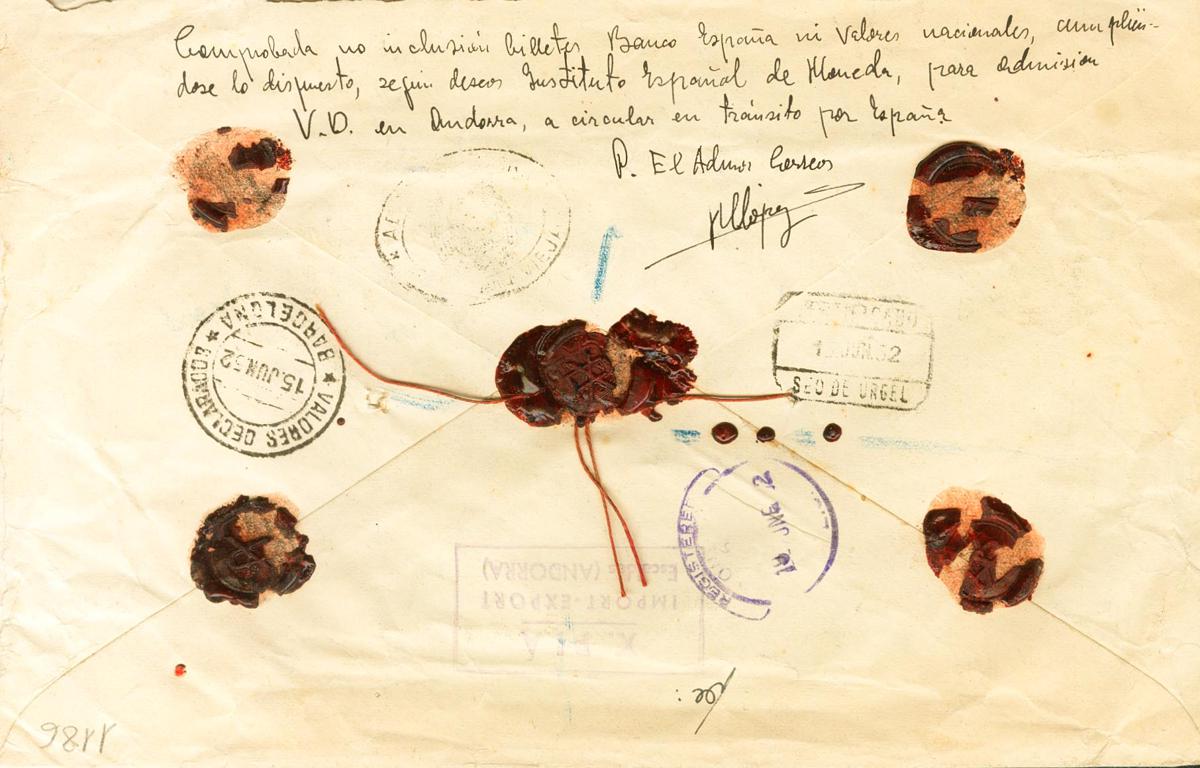 Comprobada no inclusión billetes Banco España ni Valores nacionales, cumplién-
dose lo dispuesto, según deseos Instituto Español de Moneda, para admisión
V.D. en Andorra, a circular en tránsito por España
P. El Admor Correos
MLópez
VALORES DECLARADOS
★ BARCELONA ★
15.JUN.52
JUN.52
SEO DE URGEL
REGISTERED
19 JNE 52
X. PLA
IMPORT-EXPORT
Escaldes (ANDORRA)
de: